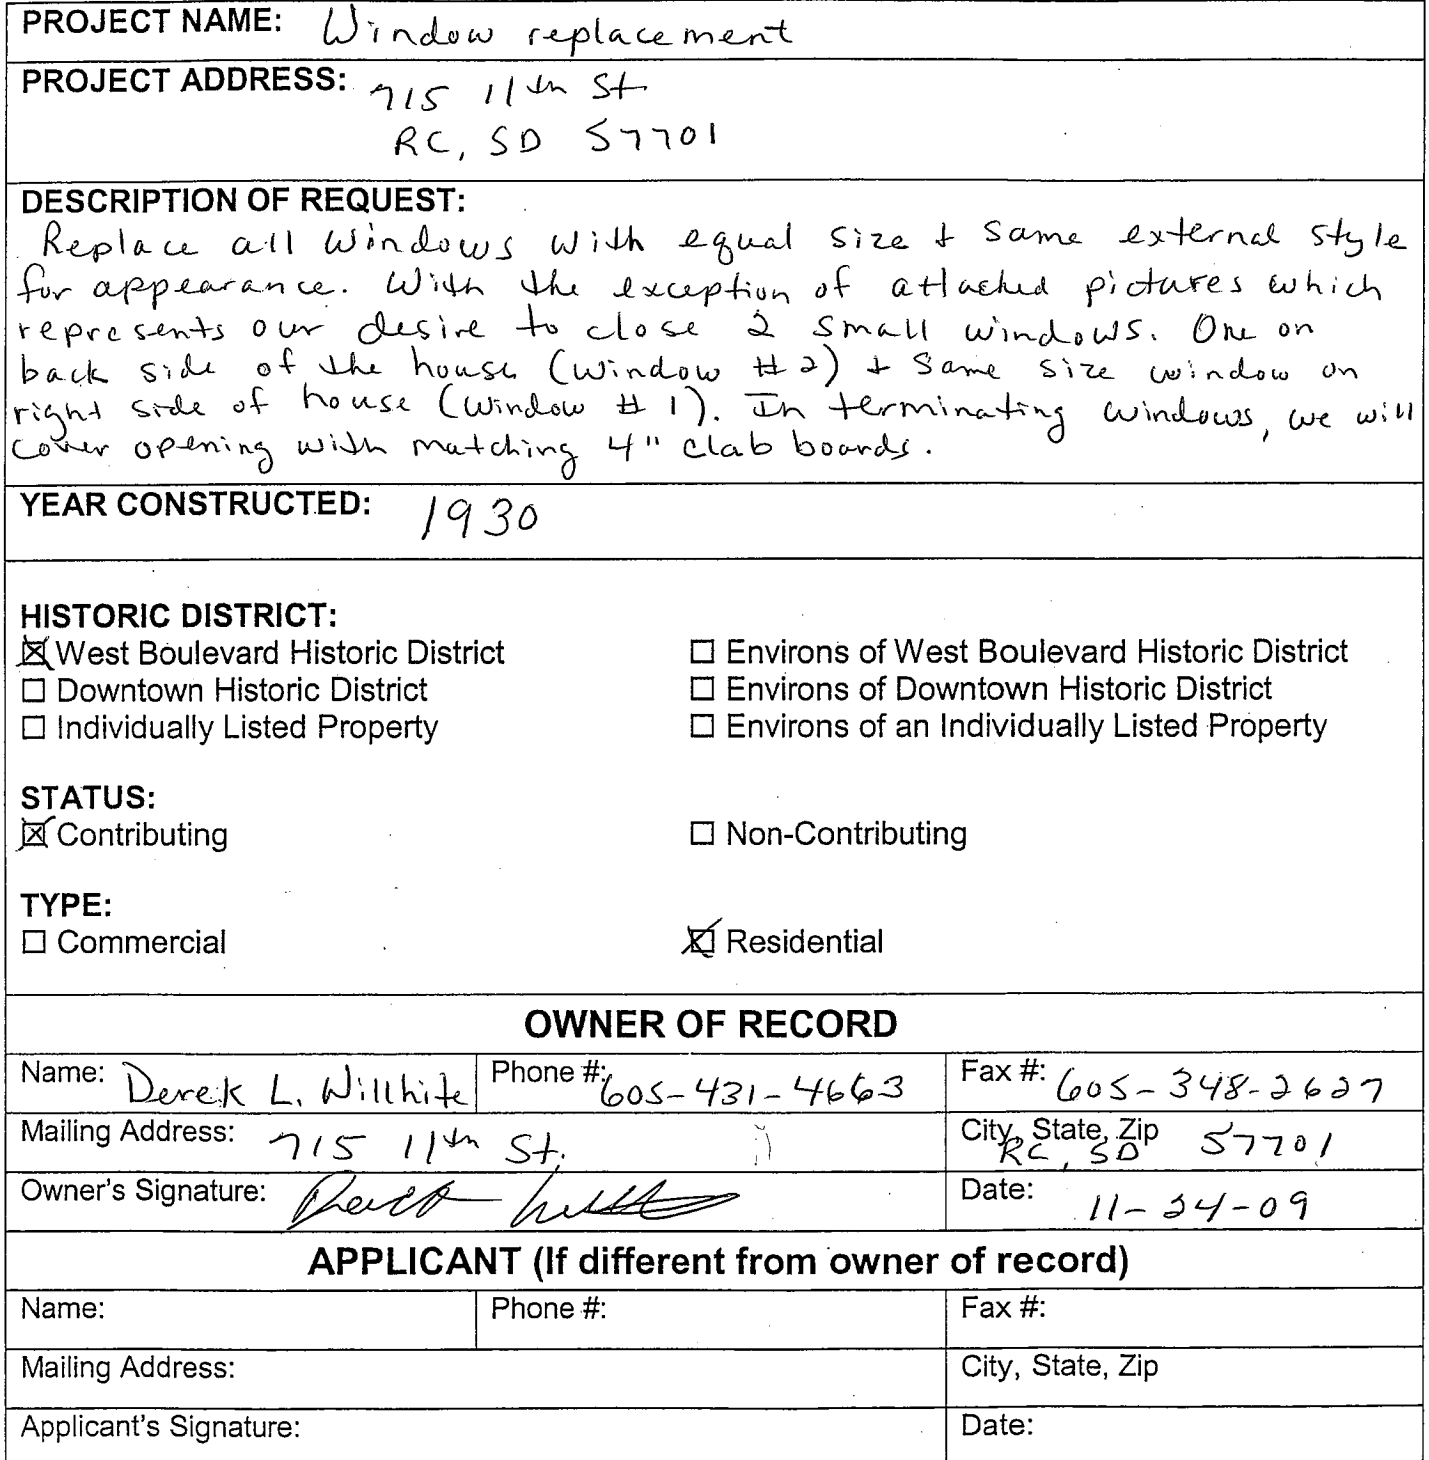 PROJECT NAME: Window replacement
PROJECT ADDRESS: 715 11th St
RC, SD 57701
DESCRIPTION OF REQUEST:
Replace all windows with equal size + same external style
for appearance. With the exception of attached pictures which
represents our desire to close 2 small windows. One on
back side of the house (window #2) + same size window on
right side of house (window #1). In terminating windows, we will
cover opening with matching 4" clab boards.
YEAR CONSTRUCTED: 1930
HISTORIC DISTRICT:
☒ West Boulevard Historic District ☐ Environs of West Boulevard Historic District
☐ Downtown Historic District ☐ Environs of Downtown Historic District
☐ Individually Listed Property ☐ Environs of an Individually Listed Property
STATUS:
☒ Contributing ☐ Non-Contributing
TYPE:
☐ Commercial ☒ Residential
OWNER OF RECORD
Name: Derek L. Willhite Phone #: 605-431-4663 Fax #: 605-348-2627
Mailing Address: 715 11th St. City, State, Zip RC, SD 57701
Owner's Signature: Date: 11-24-09
APPLICANT (If different from owner of record)
Name: Phone #: Fax #:
Mailing Address: City, State, Zip
Applicant's Signature: Date: